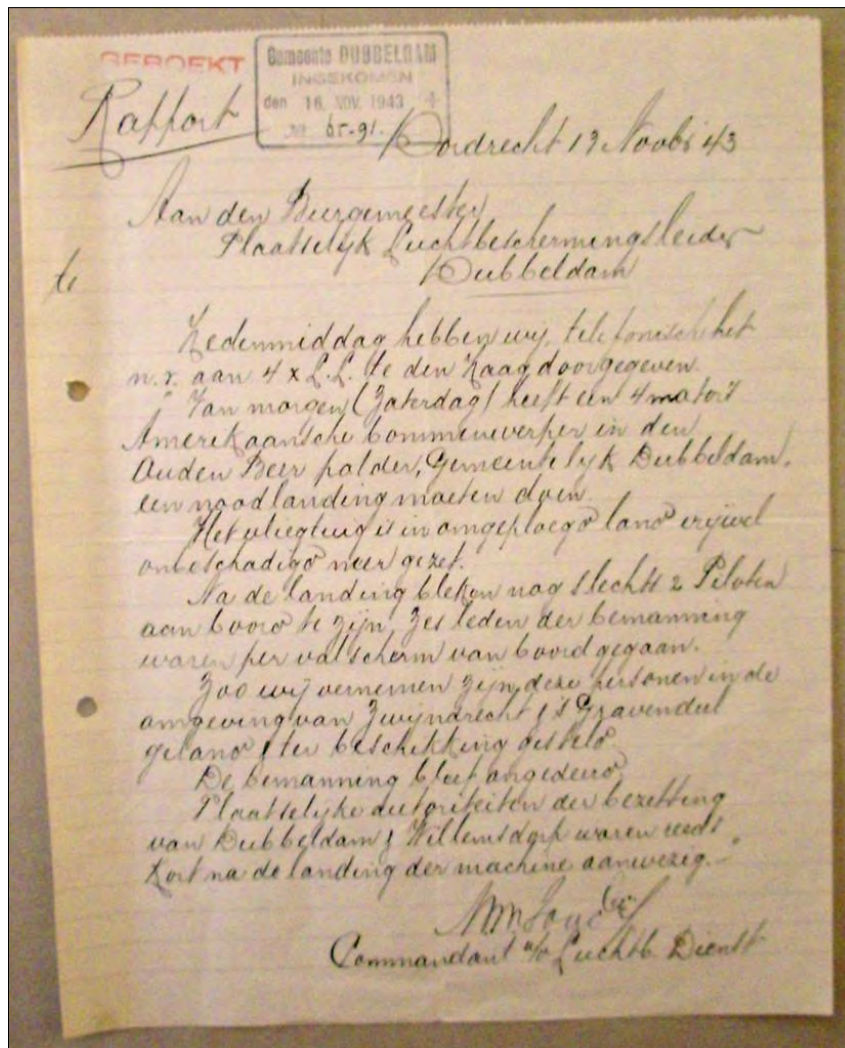 GEBOEKT
Gemeente DUBBELDAM
INGEKOMEN
den 16. NOV. 1943
No 65-91.
Rapport
Dordrecht 13 Novbr 43
Aan den Burgemeester
Plaatselijk Luchtbeschermingsleider
te Dubbeldam
Hedenmiddag hebben wij telefonisch het
n.v. aan 4 x L.L. te den Haag doorgegeven.
"Van morgen (Zaterdag) heeft een 4 motors
Amerikaansche bommenwerper in den
Ouden Beer polder, Gemeentelijk Dubbeldam,
een noodlanding moeten doen.
Het vliegtuig is in omgeploegd land vrijwel
onbeschadigd neer gezet.
Na de landing bleken nog slechts 2 Piloten
aan boord te zijn, zes leden der bemanning
waren per valscherm van boord gegaan.
Zoo wij vernemen zijn deze personen in de
omgeving van Zwijndrecht & 's Gravendeel
geland & ter beschikking gesteld.
De bemanning bleef ongedeerd.
Plaatselijke autoriteiten der bezetting
van Dubbeldam & Willemsdorp waren reeds
kort na de landing der machine aanwezig.–"
Commandant v/d Luchtb. Dienst